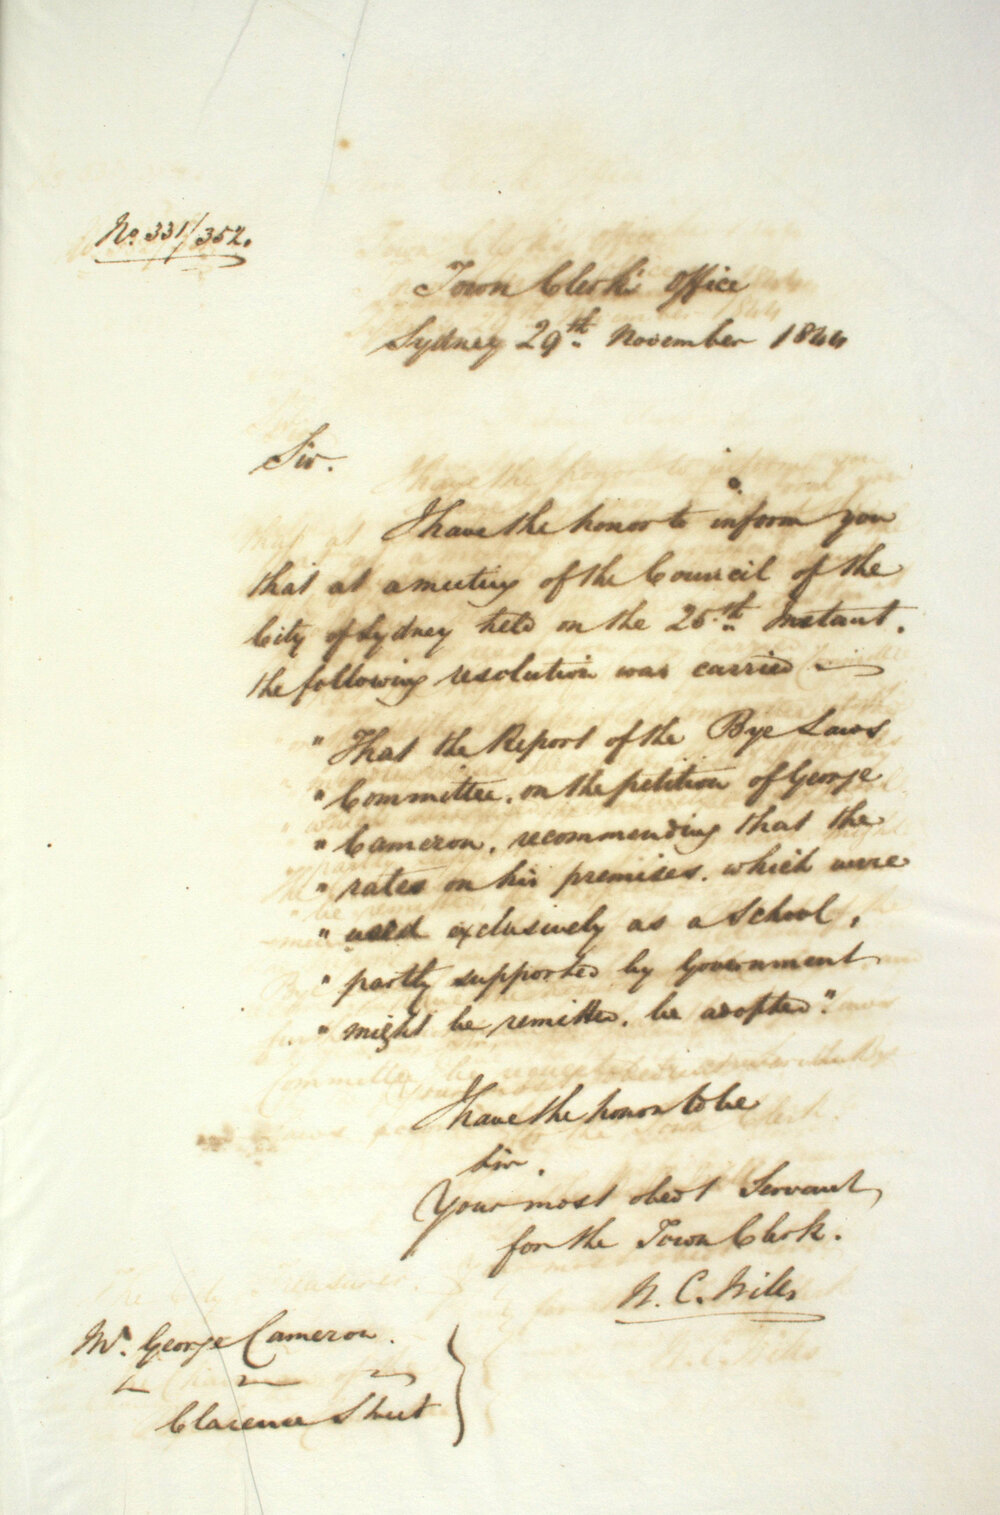 No. 331/352.
Town Clerk's Office
Sydney 29th November 1844
Sir.
I have the honor to inform you
that at a meeting of the Council of the
City of Sydney held on the 25th Instant.
the following resolution was carried
" That the Report of the Bye Laws
" Committee, on the petition of George
" Cameron, recommending that the
" rates on his premises, which were
" used exclusively as a School,
" partly supported by Government
" might be remitted, be adopted."
I have the honor to be
Sir,
Your most obedt Servant
for the Town Clerk.
W. C. Wills
Mr. George Cameron.
Clarence Street